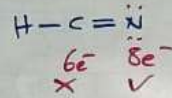 H — C = N̤̈
6e⁻ 8e⁻
× ✓